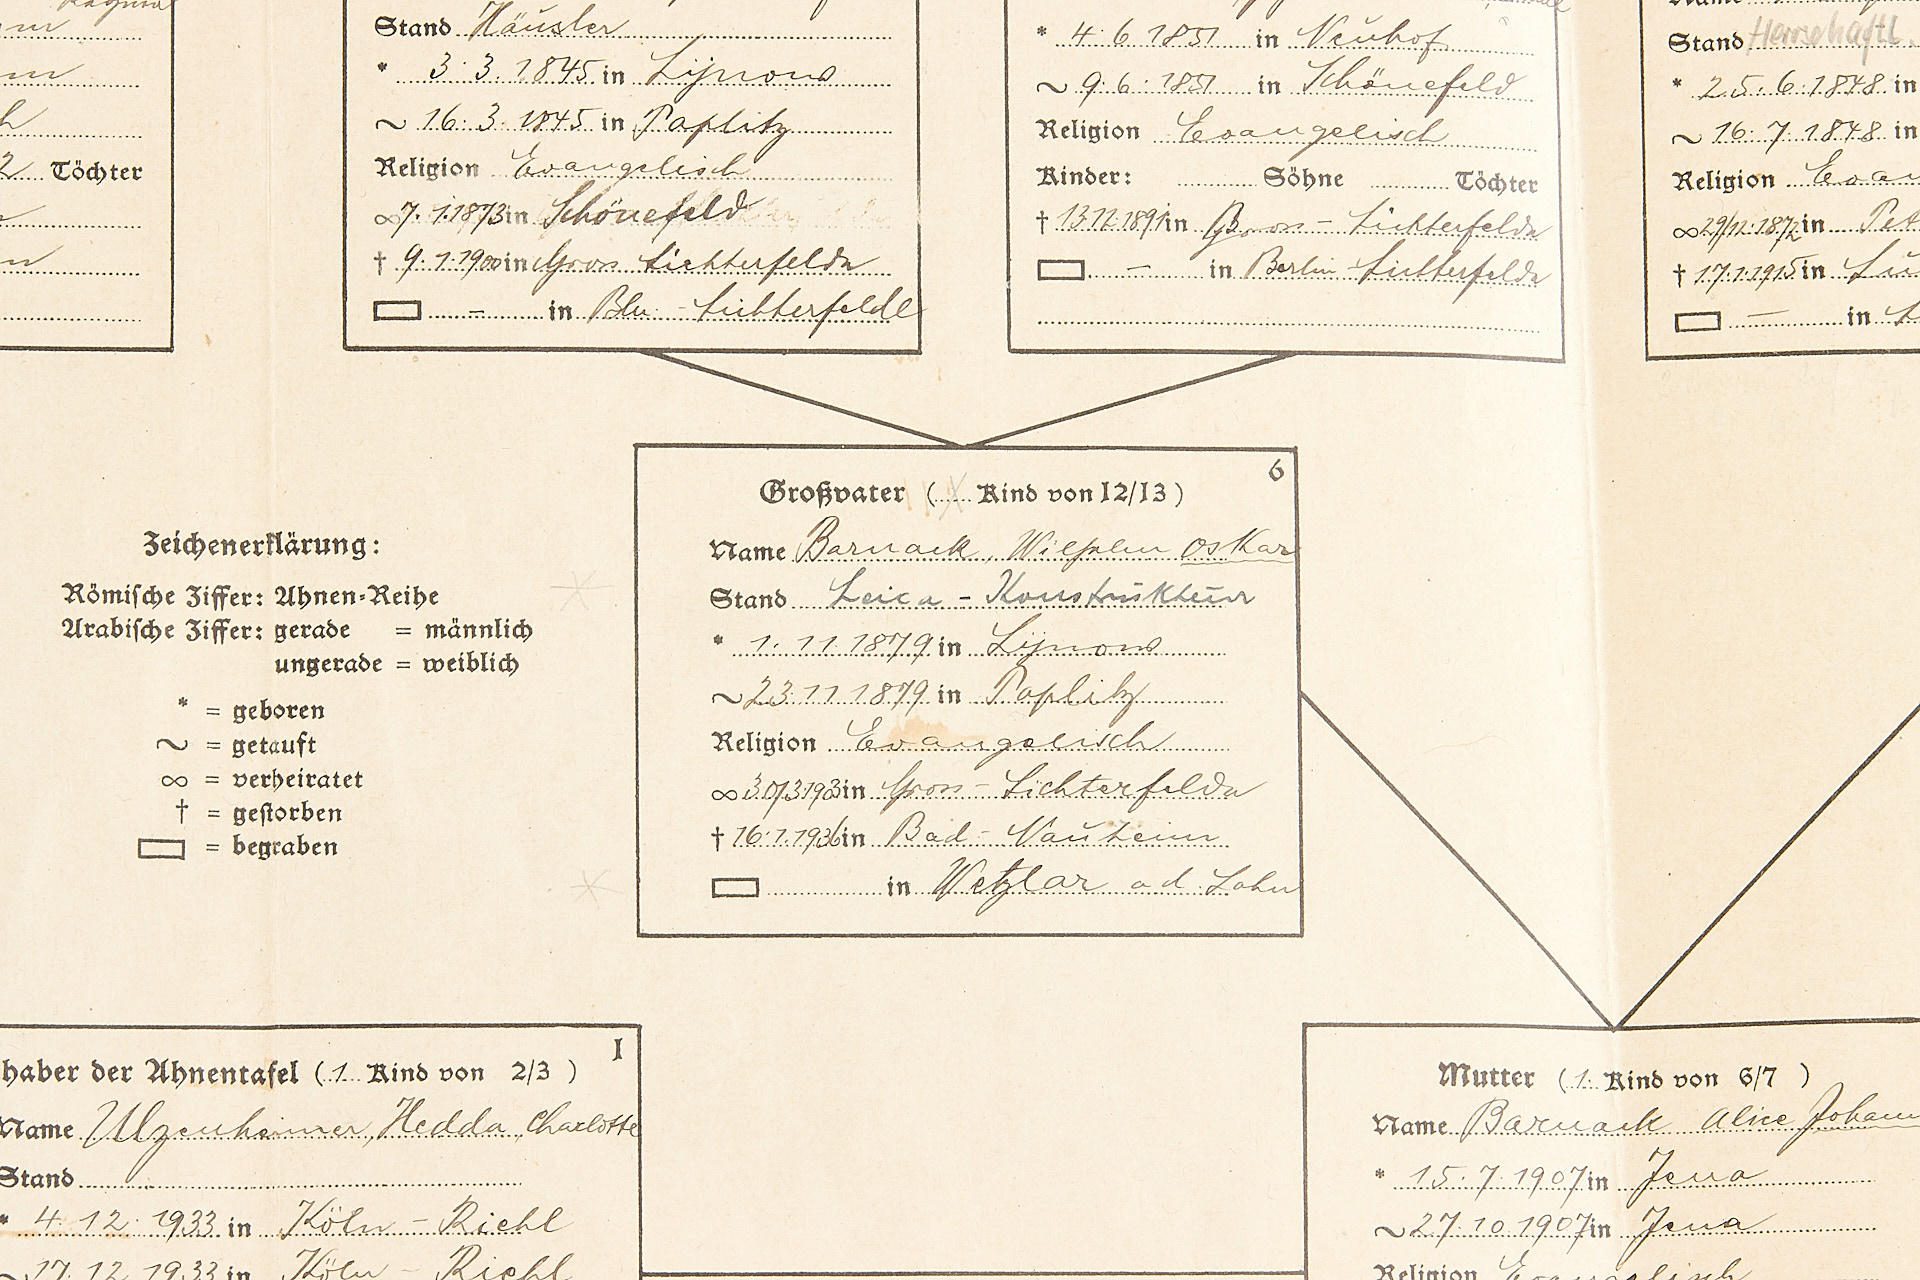 2 Töchter
Stand Häusler
* 3. 3. 1845 in Lynow
~ 16. 3. 1845 in Paplitz
Religion Evangelisch
∞ 7. 1. 1873 in Schönefeld
† 9. 1. 1900 in Gross Lichterfelde
in Bln. - Lichterfelde
* 4. 6. 1851 in Neuhof
~ 9. 6. 1851 in Schönefeld
Religion Evangelisch
Kinder: Söhne Töchter
† in Gross - Lichterfelde
in Berlin - Lichterfelde
Stand Herrschaftl.
* 25. 6. 1848 in
~ 16. 7. 1848 in
Religion
∞ 29/12. 1872 in
† 17. 1. 1915 in
in
Zeichenerklärung:
Römische Ziffer: Ahnen-Reihe
Arabische Ziffer: gerade = männlich
ungerade = weiblich
* = geboren
~ = getauft
∞ = verheiratet
† = gestorben
= begraben
6
Großvater ( Kind von 12/13 )
Name Barnack, Wilhelm Oskar
Stand Leica - Konstrukteur
* 1. 11. 1879 in Lynow
~ 23. 11. 1879 in Paplitz
Religion Evangelisch
∞ in Gross - Lichterfelde
† 16. 1. 1936 in Bad - Nauheim
in Wetzlar a. d. Lahn
I
haber der Ahnentafel ( 1. Kind von 2/3 )
Name Ulzenheimer, Hedda Charlotte
Stand
* 4. 12. 1933 in Köln - Riehl
~ 17. 12. 1933 in Köln - Riehl
Mutter ( 1. Kind von 6/7 )
Name Barnack Alice Johann
* 15. 7. 1907 in Jena
~ 27. 10. 1907 in Jena
Religion Evangelisch